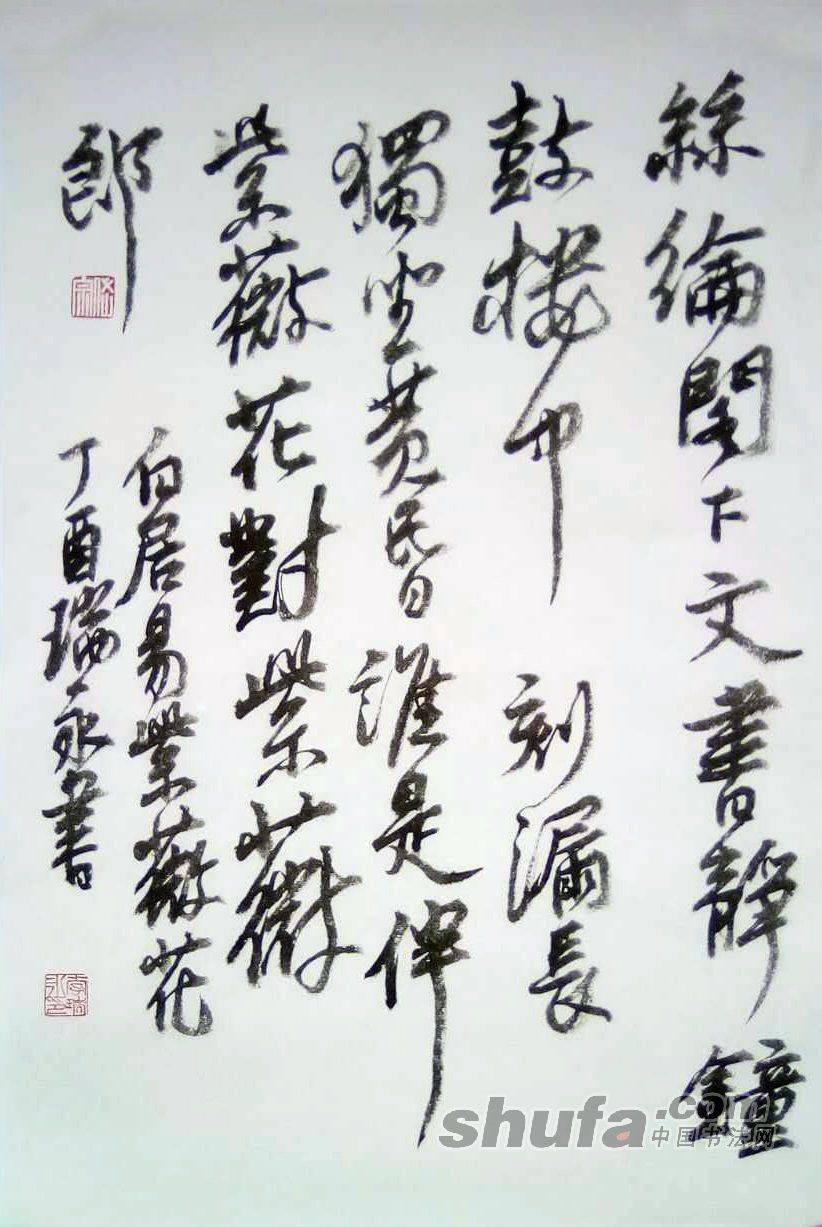 絲綸閣下文書靜鐘
鼓樓中刻漏長
獨坐黄昏誰是伴
紫薇花對紫薇
郎
白居易紫薇花
丁酉瑞永書
shufa.com
中国书法网